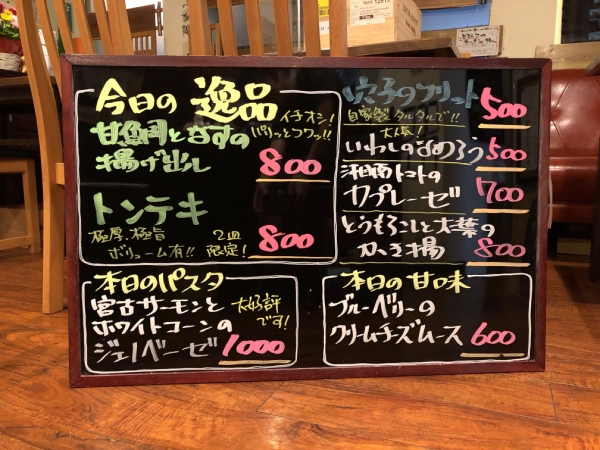 今日の 逸品
イチオシ!
甘鯛となすの
パリッとフワッ!!
揚げ出し 800
トンテキ
極厚、極旨
ボリューム有!!
2皿
限定! 800
穴子のフリット 500
自家製タルタルで!!
大人気!
いわしのなめろう 500
湘南トマトの
カプレーゼ 700
とうもろこしと大葉の
かき揚 800
本日のパスタ
宮古サーモンと
ホワイトコーンの
大好評
です!
ジェノベーゼ 1000
本日の甘味
ブルーベリーの
クリームチーズムース 600